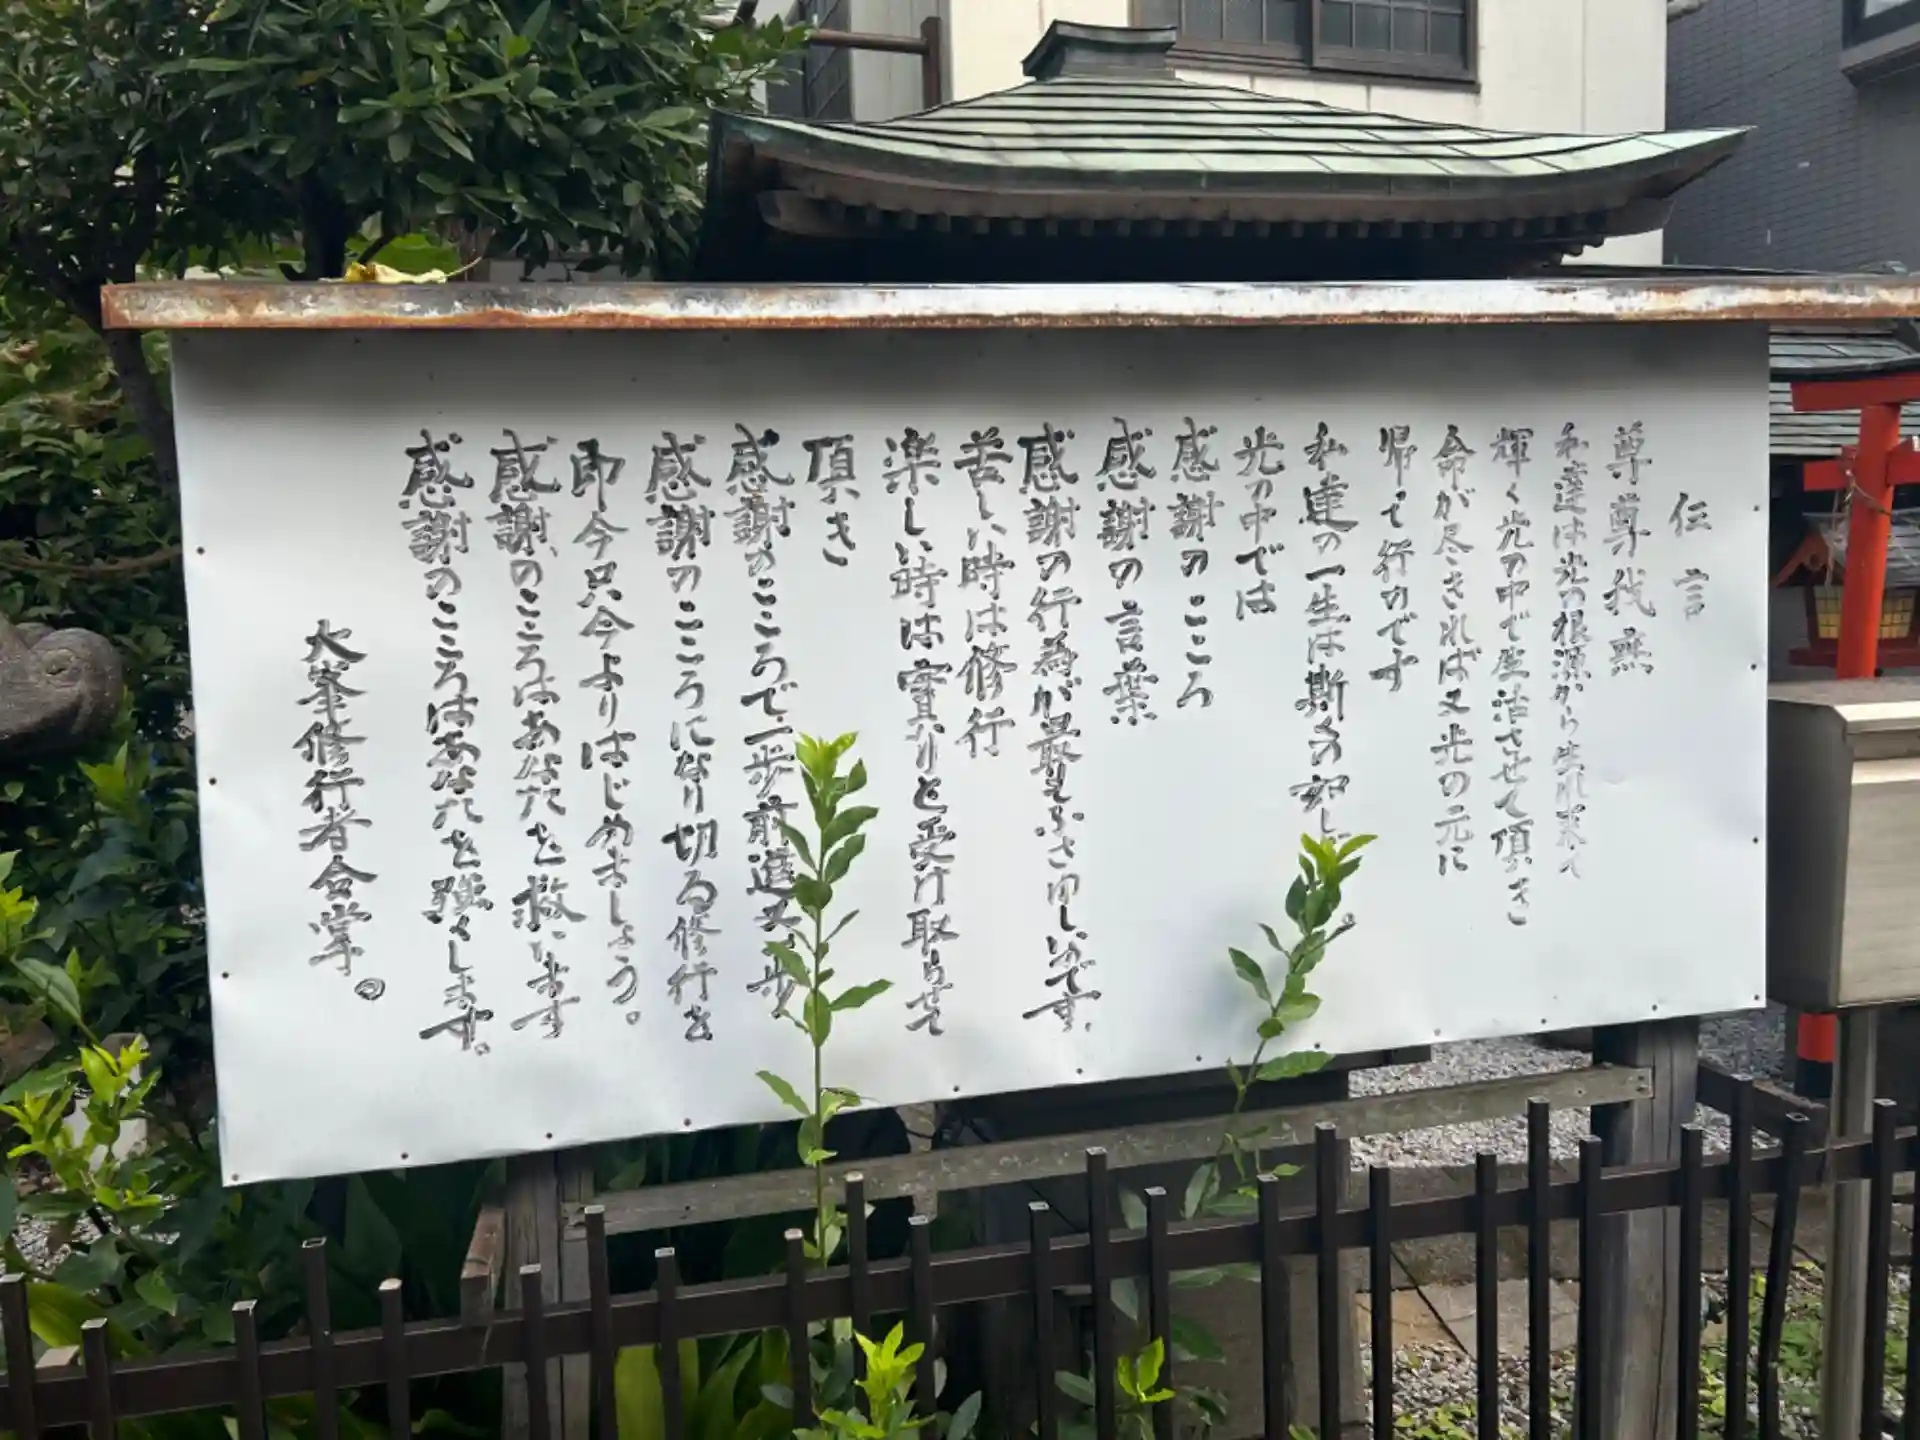 伝言
尊尊我無
私達は光の根源から生れ来て
輝く光の中で生活させて頂き
命が尽きれば又光の元に
帰て行のです
私達の一生は斯の如し。
光の中では
感謝のこころ
感謝の言葉
感謝の行為が最もふさわしいです。
苦しい時は修行
楽しい時は實りと受け取らせて
頂き
感謝のこころで一歩前進又一歩
感謝のこころになり切る修行を
即今只今よりはじめましょう。
感謝のこころはあなたを救います
感謝のこころはあなたを強くします。
大峯修行者合掌。